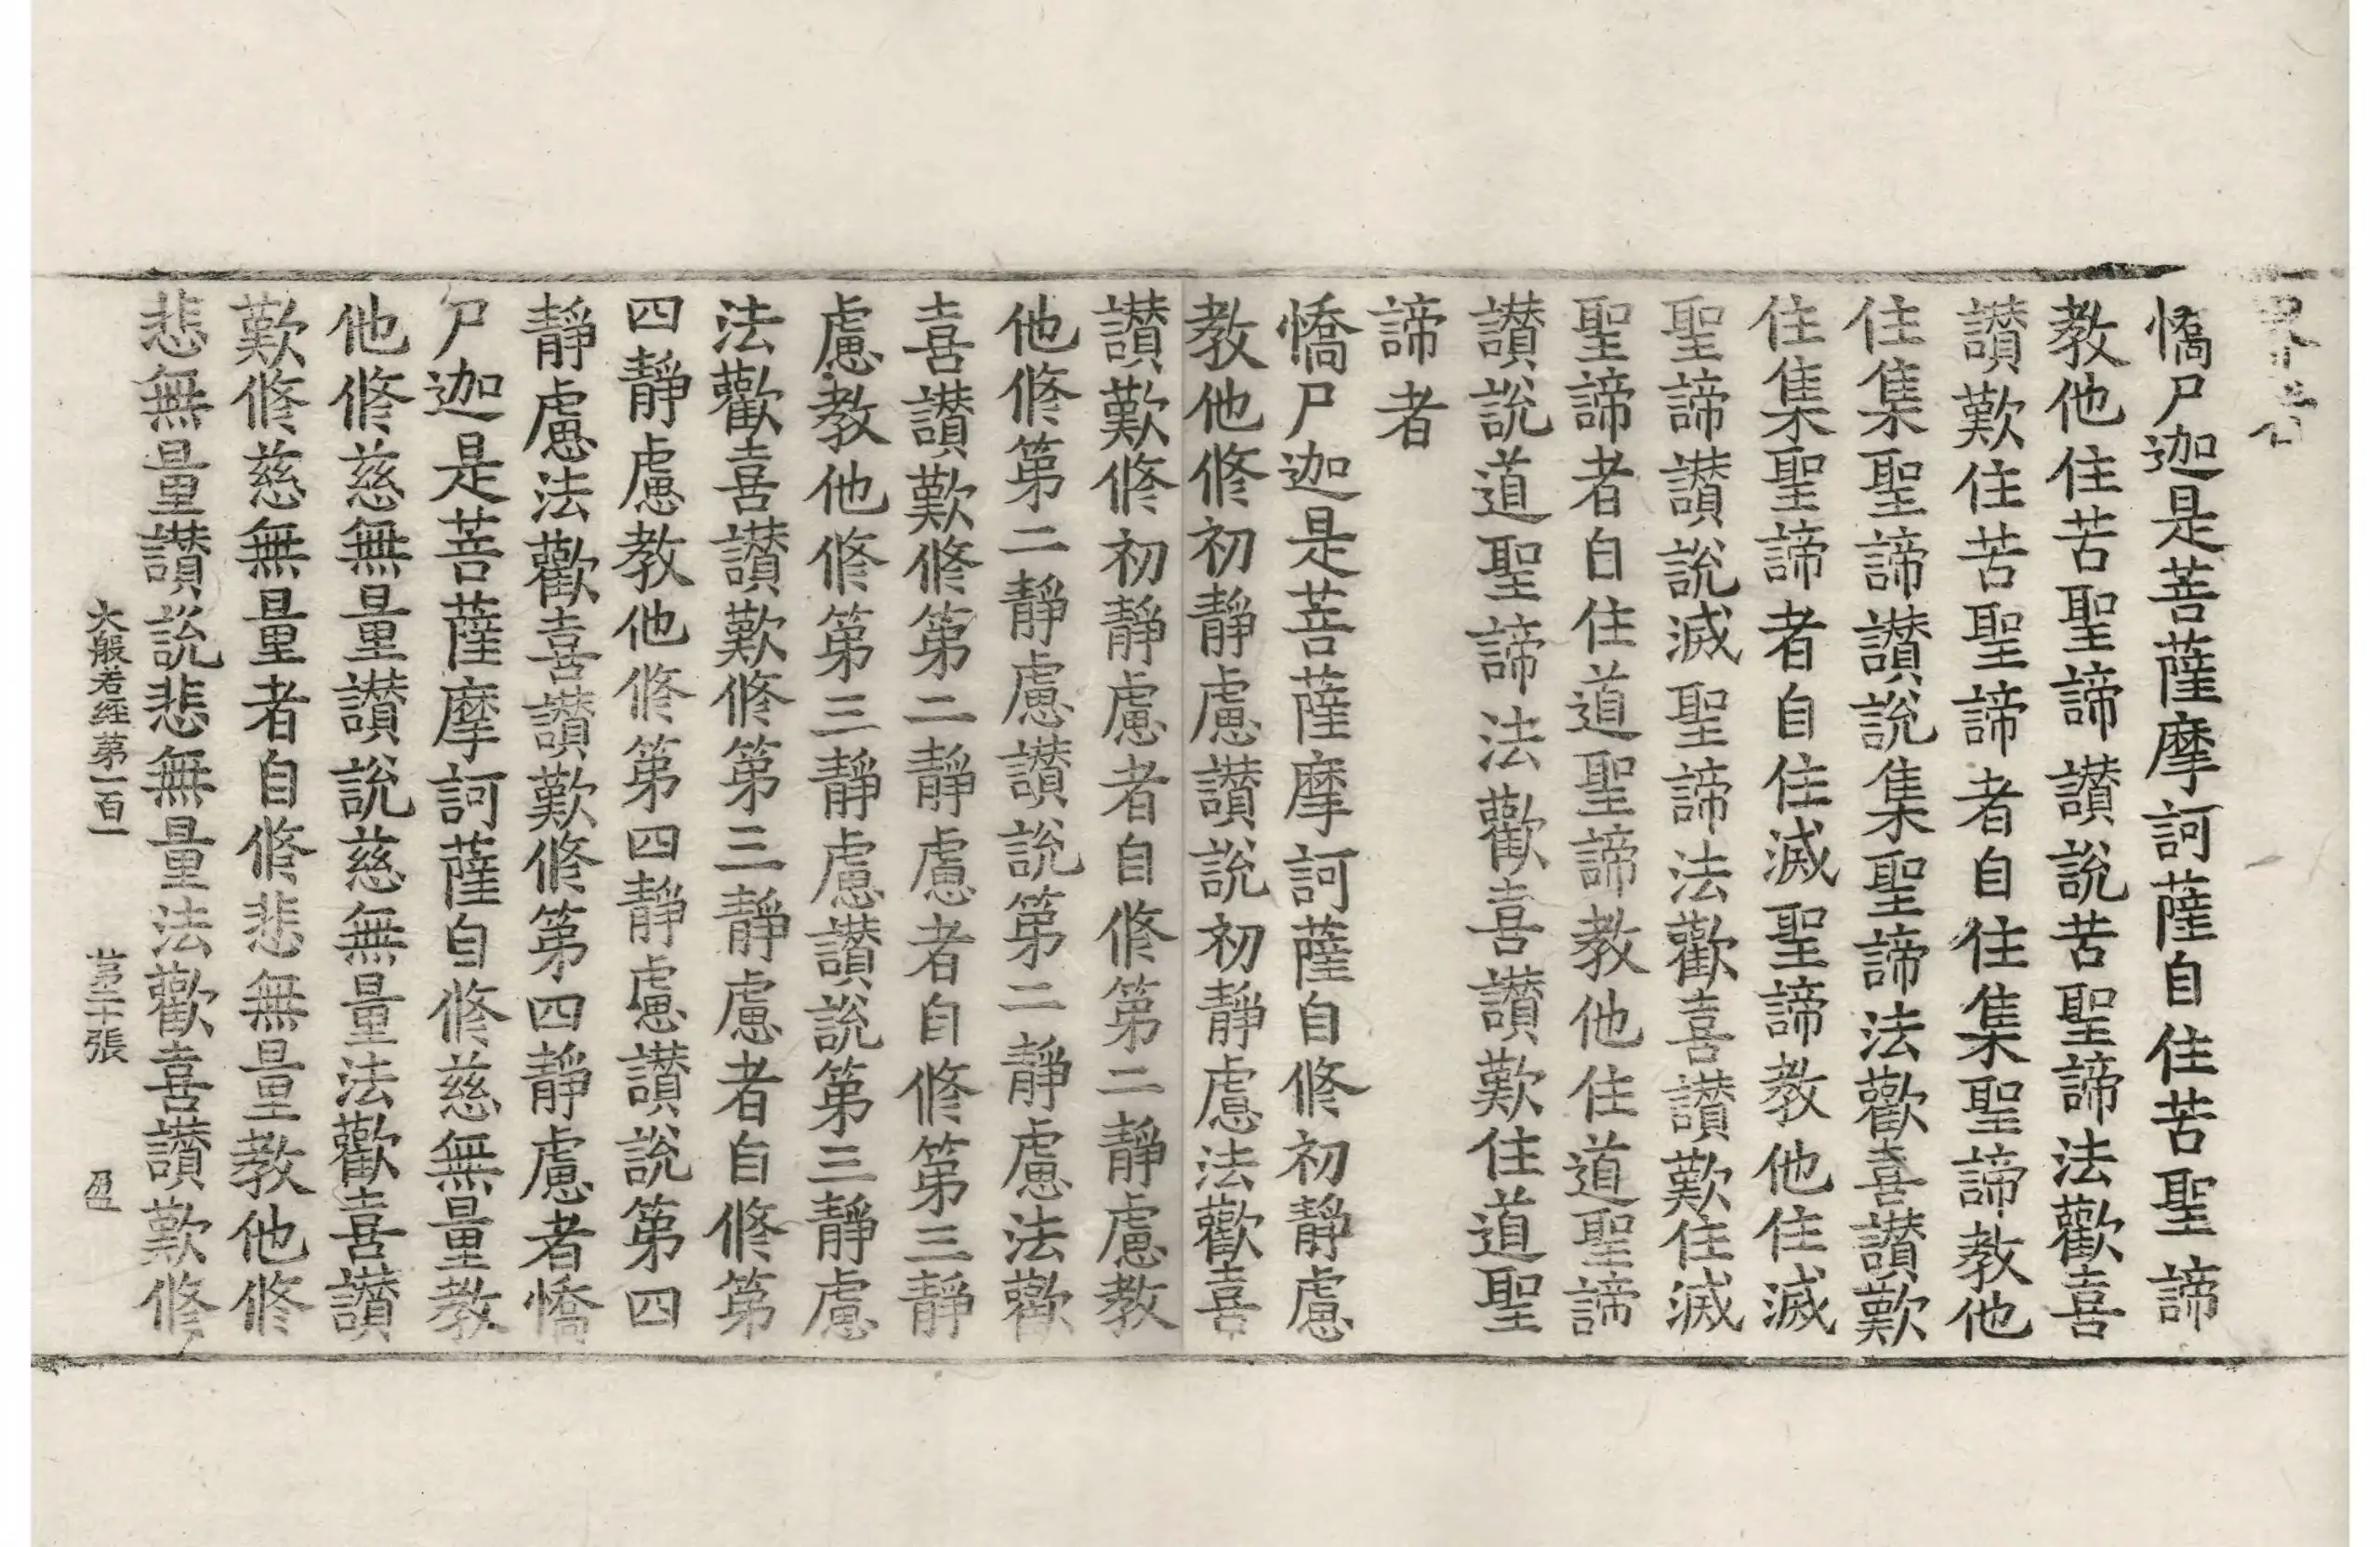 憍尸迦是菩薩摩訶薩自住苦聖諦
教他住苦聖諦讃說苦聖諦法歡喜
讃歎住苦聖諦者自住集聖諦教他
住集聖諦讃說集聖諦法歡喜讃歎
住集聖諦者自住滅聖諦教他住滅
聖諦讃說滅聖諦法歡喜讃歎住滅
聖諦者自住道聖諦教他住道聖諦
讃說道聖諦法歡喜讃歎住道聖
諦者
憍尸迦是菩薩摩訶薩自修初靜慮
教他修初靜慮讃說初靜慮法歡喜
讃歎修初靜慮者自修第二靜慮教
他修第二靜慮讃說第二靜慮法歡
喜讃歎修第二靜慮者自修第三靜
慮教他修第三靜慮讃說第三靜慮
法歡喜讃歎修第三靜慮者自修第
四靜慮教他修第四靜慮讃說第四
靜慮法歡喜讃歎修第四靜慮者憍
尸迦是菩薩摩訶薩自修慈無量教
他修慈無量讃說慈無量法歡喜讃
歎修慈無量者自修悲無量教他修
悲無量讃說悲無量法歡喜讃歎修
大般若經第一百一 張